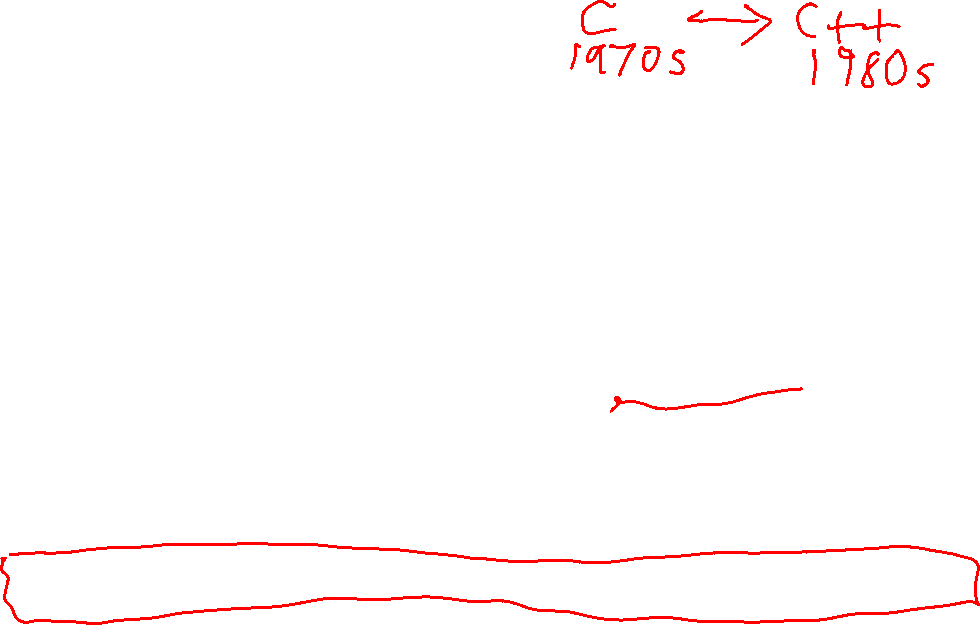 C ↔ C++
1970s 1980s